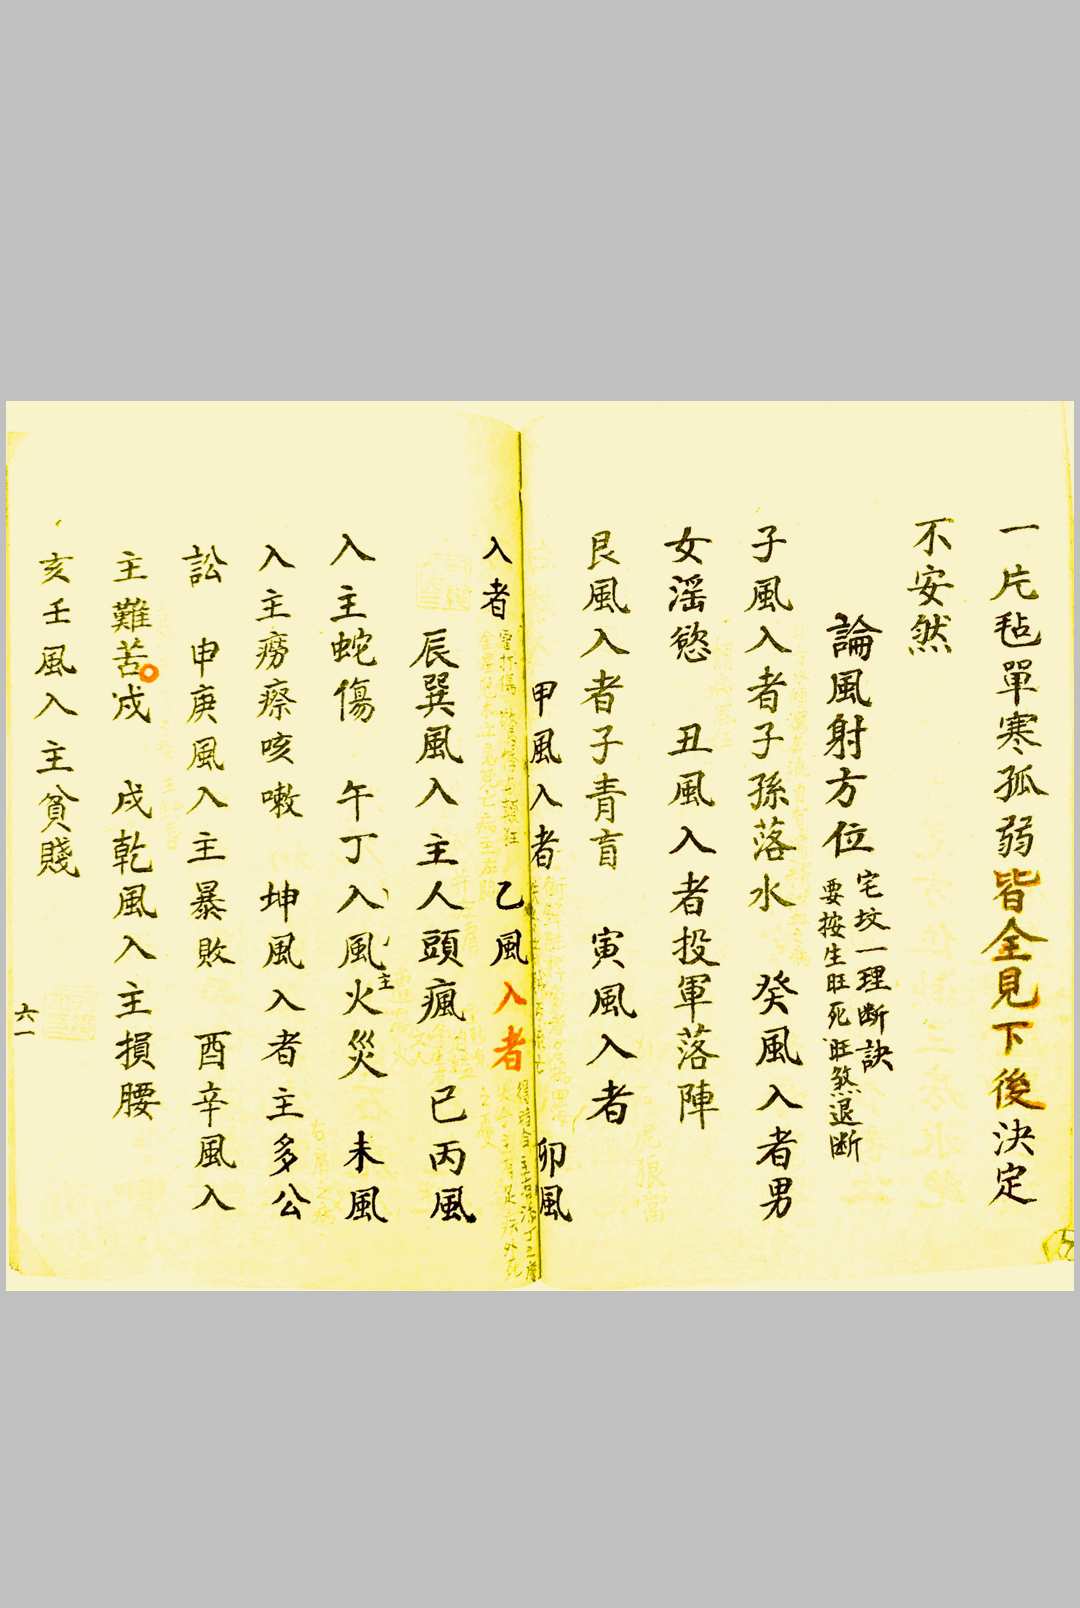 一片毡單寒孤弱皆全見下後決定
不安然
論風射方位
宅坟一理断訣
要按生旺死旺煞退断
子風入者子孫落水　癸風入者男
女滛慾　丑風入者投軍落陣
艮風入者子青盲　寅風入者
甲風入者　卯風
入者　乙風入者
辰巽風入主人頭瘋　巳丙風
入主蛇傷　午丁入風主火災　未風
入主癆瘵咳嗽　坤風入者主多公
訟　申庚風入主暴敗　酉辛風入
主難苦戍　戌乾風入主損腰
亥壬風入主貧賤
六一